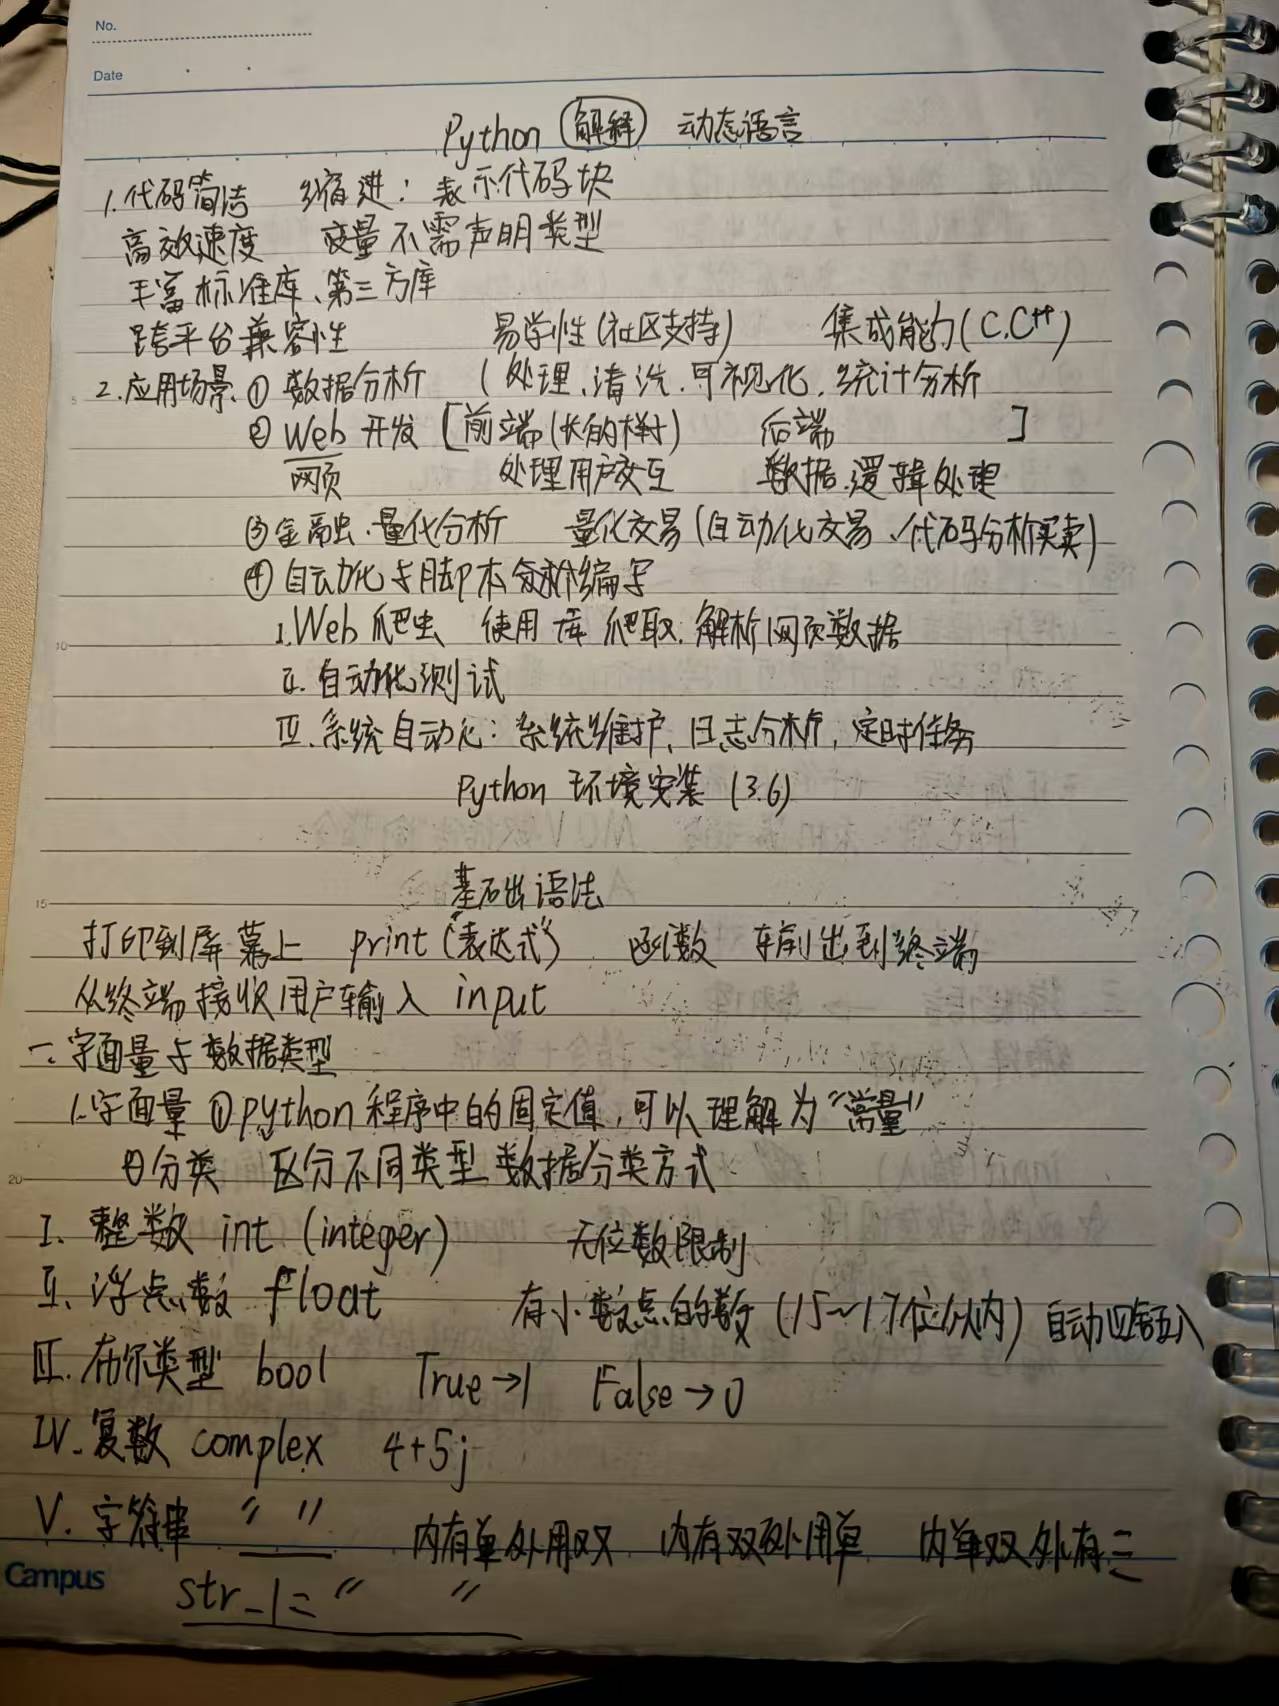 No.
Date
Python 解释 动态语言
1.代码简洁 缩进：表示代码块
高效速度 变量不需声明类型
丰富标准库、第三方库
跨平台兼容性 易学性(社区支持) 集成能力(C.C++)
2.应用场景.① 数据分析 (处理、清洗.可视化.统计分析
② Web 开发 [前端(长的样) 后端 ]
网页 处理用户交互 数据.逻辑处理
③金融.量化分析 量化交易(自动化交易、代码分析买卖)
④自动化与脚本编写
I.Web 爬虫 使用库 爬取.解析网页数据
II.自动化测试
III.系统自动化：系统维护、日志分析，定时任务
Python 环境安装 (3.6)
基础语法
打印到屏幕上 print("表达式") 函数 输出到终端
从终端接收用户输入 input
一.字面量与数据类型
1.字面量 ①python程序中的固定值，可以理解为"常量"
②分类 区分不同类型数据分类方式
I. 整数 int (integer) 无位数限制
II. 浮点数 float 有小数点的数 (15~17位以内) 自动四舍五入
III. 布尔类型 bool True→1 False→0
IV. 复数 complex 4+5j
V. 字符串 " " 内有单外用双 内有双外用单 内单双外有三
Campus
str_1=" "